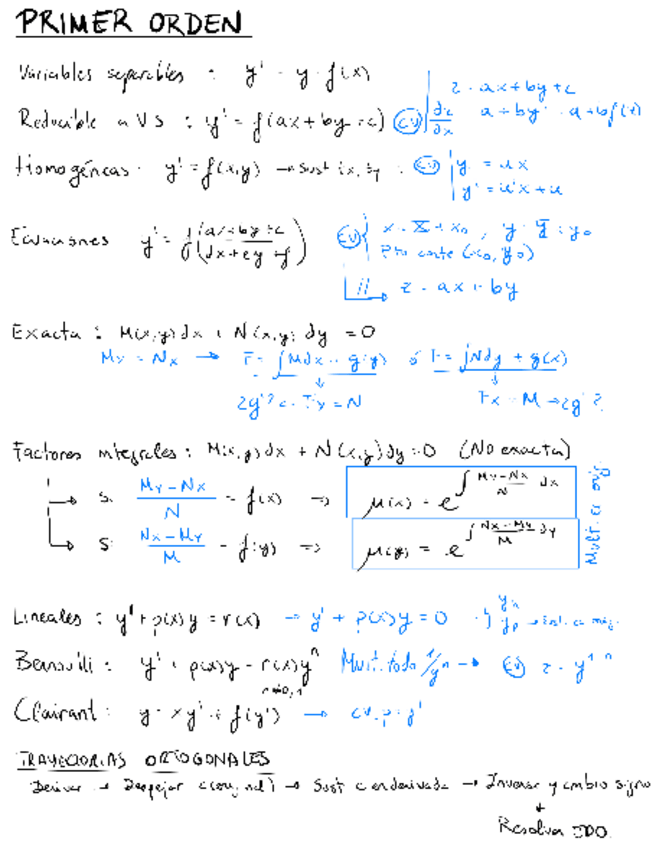 PRIMER ORDEN
Variables separables : y' = y · f(x)
Reducible a VS : y' = f(ax + by + c) CV z = ax + by + c
dz/dx a + by' = a + bf(z)
Homogéneas. y' = f(x,y) → Sust CV y = ux
y' = u'x + u
Ecuaciones y' = f((ax + by + c)/(dx + ey + f)) CV x = X + x₀ , y = Y + y₀
Pto corte (x₀, y₀)
// → z = ax + by
Exacta : M(x,y) dx + N(x,y) dy = 0
My = Nx → F = ∫Mdx + g(y) ó F = ∫Ndy + g(x)
Fy = N Fx = M →
Factores integrales : M(x,y) dx + N(x,y) dy = 0 (No exacta)
→ Si (My - Nx)/N = f(x) => μ(x) = e^∫(My-Nx)/N dx
→ Si (Nx - My)/M = f(y) => μ(y) = e^∫(Nx-My)/M dy
Mult. a
Lineales : y' + p(x) y = r(x) → y' + p(x) y = 0 yh
yp →
Bernoulli : y' + p(x)y = r(x)yⁿ Mult. todo 1/yⁿ → CV z = y¹⁻ⁿ
n≠0,1
Clairant : y = xy' + f(y') → CV. p = y'
TRAYECTORIAS ORTOGONALES
Derivar → Despejar c → Sust c en derivada → Inversa y cambio signo
Resolver EDO.